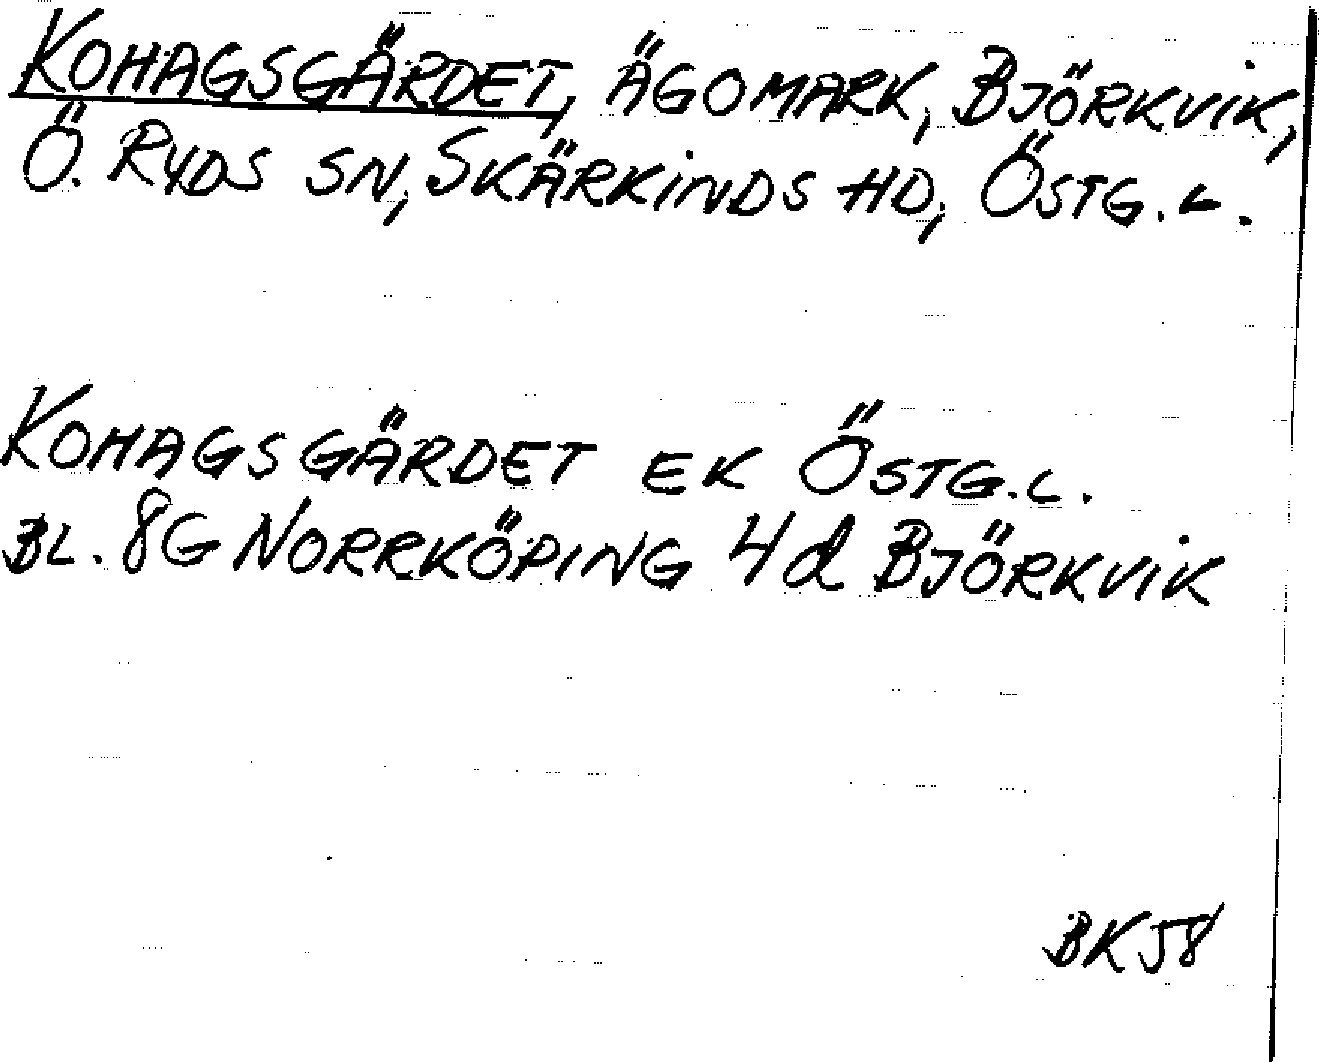 KOHAGSGÄRDET, ÄGOMARK, BJÖRKVIK,
Ö. RYDS SN, SKÄRKINDS HD, ÖSTG. L.
KOHAGSGÄRDET EK ÖSTG. L.
BL. 8G NORRKÖPING 4d BJÖRKVIK
BK58